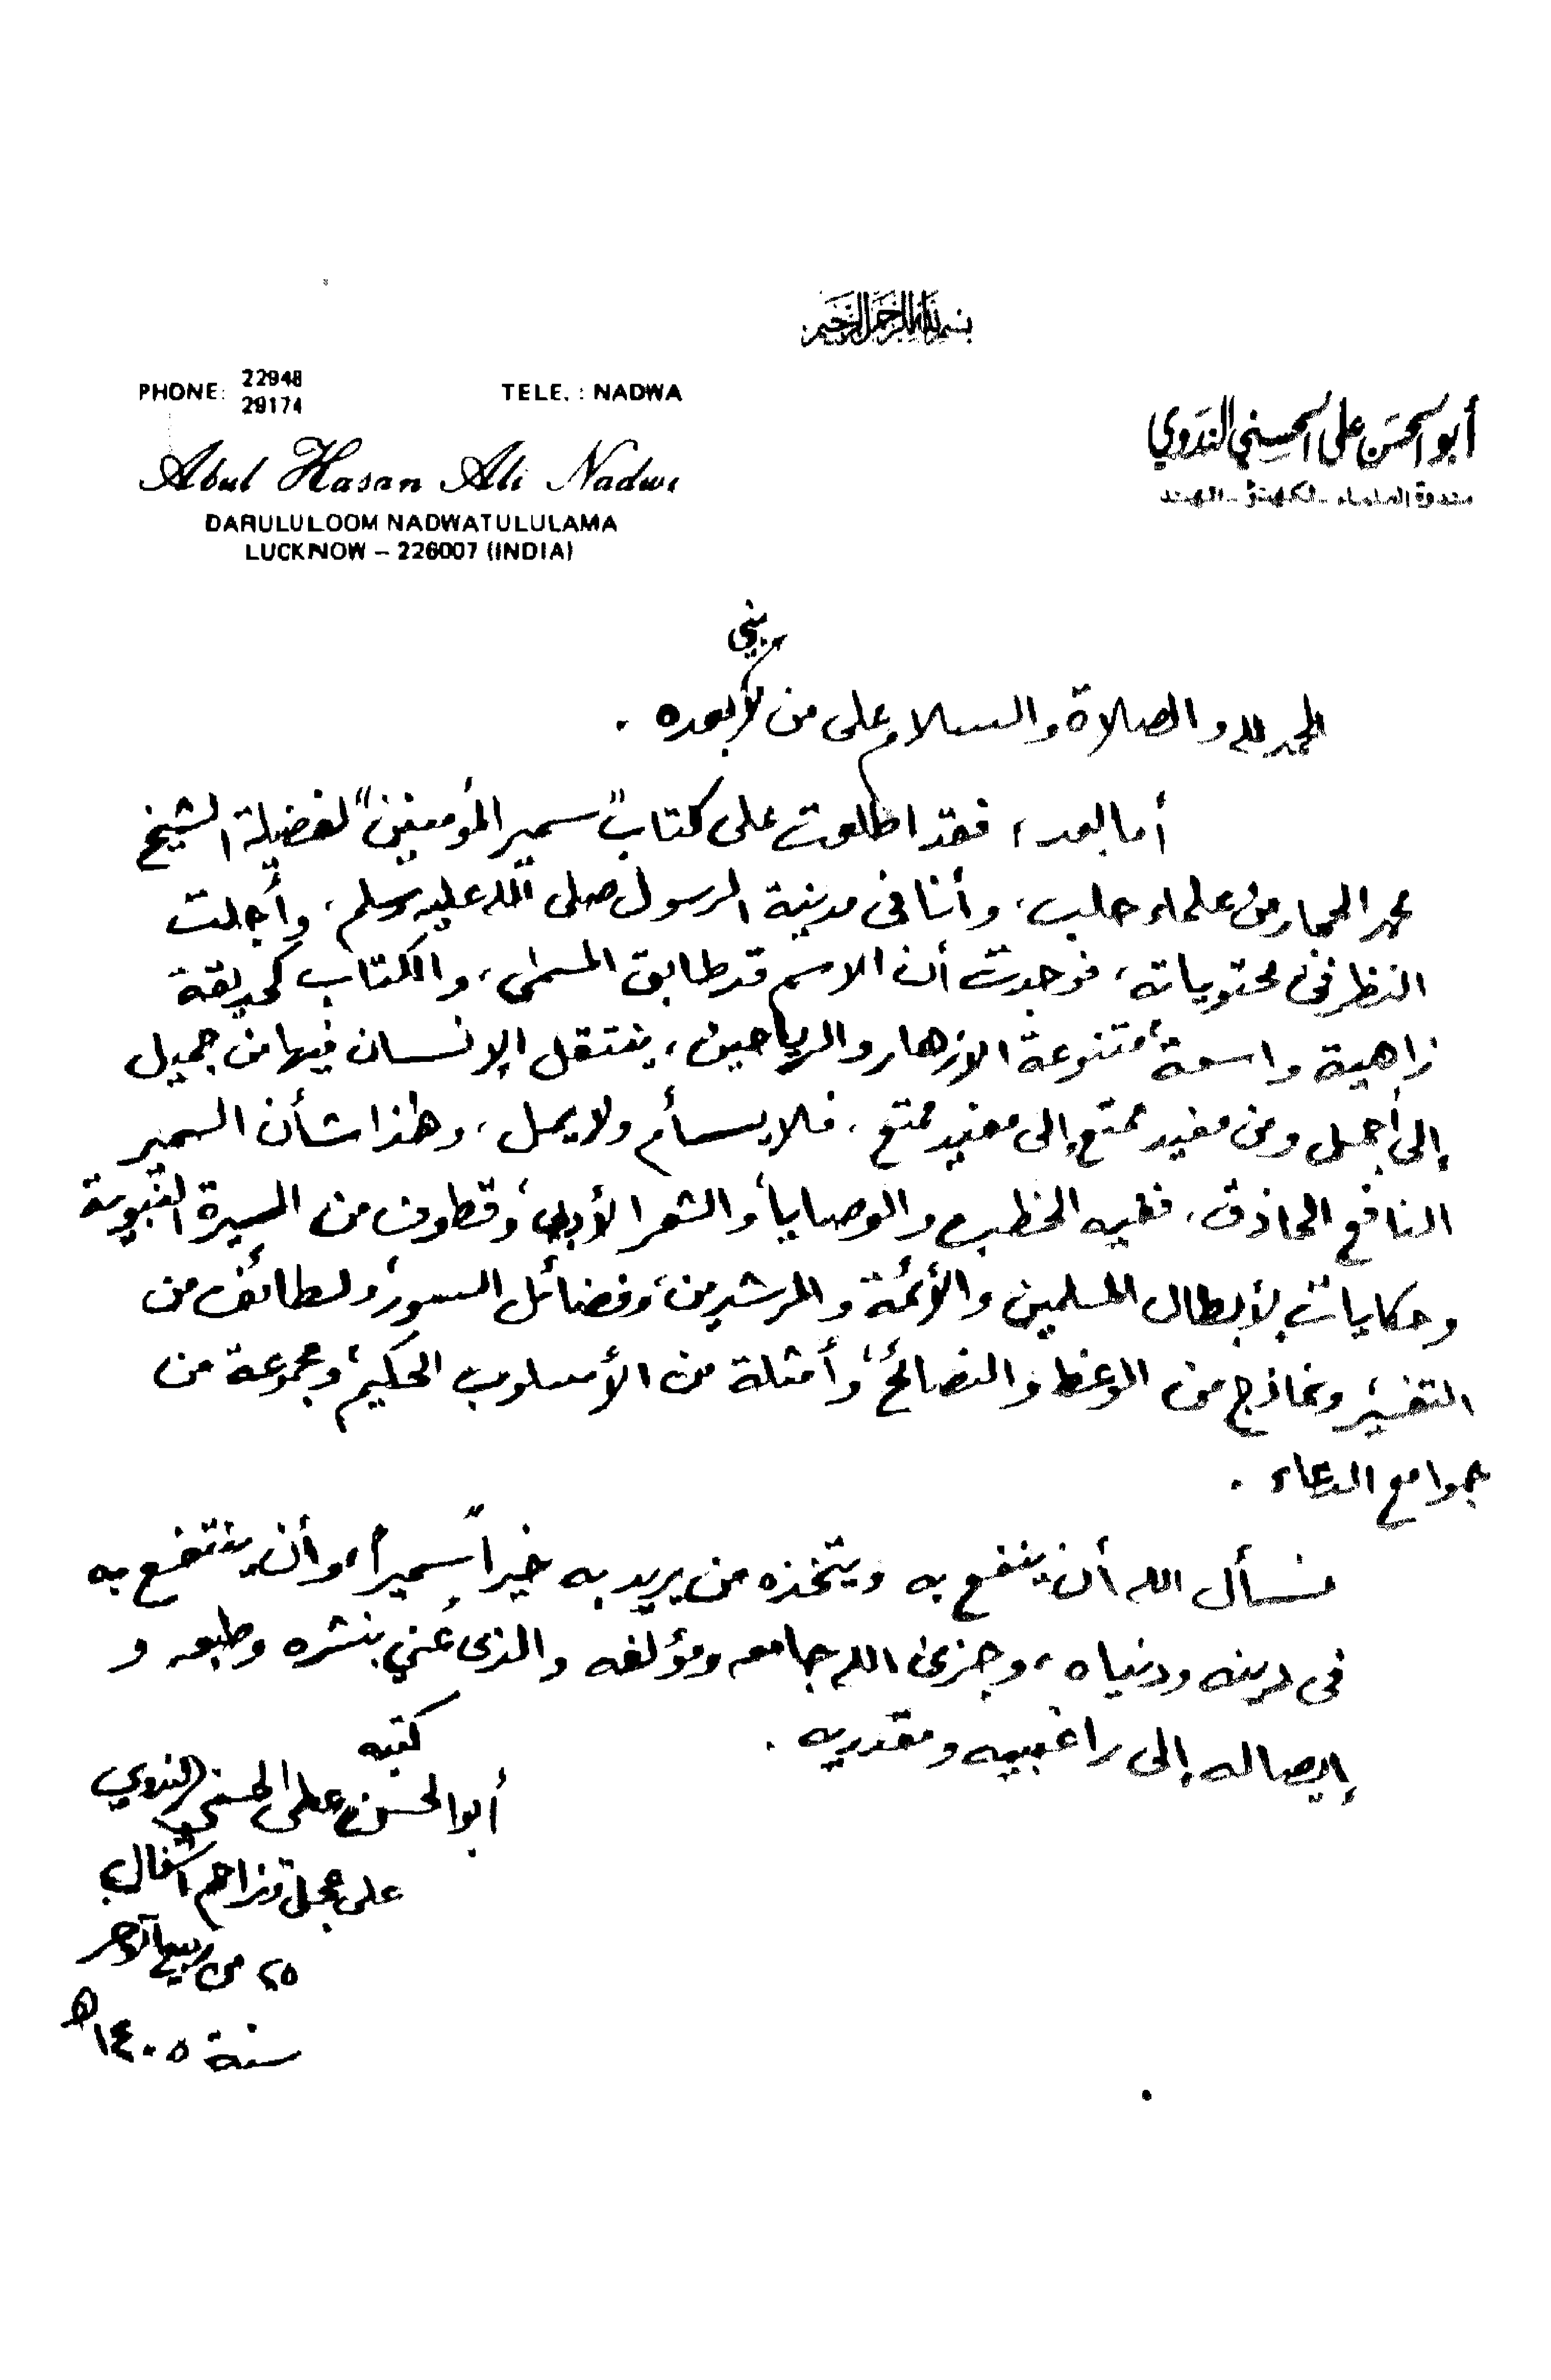 بسم الله الرحمن الرحيم
PHONE: 22948
29174
TELE. : NADWA
أبو الحسن علي الحسني الندوي
Abul Hasan Ali Nadwi
ندوة العلماء - لكهنؤ - الهند
DARULULOOM NADWATULULAMA
LUCKNOW – 226007 (INDIA)
نبي
الحمد لله والصلاة والسلام على من لا بعده .
أما بعد، فقد اطلعت على كتاب "سمير المؤمنين" لفضيلة الشيخ
محمد الحجار من علماء حلب، وأنا في مدينة الرسول صلى الله عليه وسلم، وأجلت
النظر في محتوياته، فوجدت أن الاسم قد طابق المسمى، والكتاب كحديقة
زاهية واسعة، متنوعة الأزهار والرياحين، ينتقل الإنسان فيها من جميل
إلى أجمل ومن مفيد ممتع إلى مفيد ممتع، فلا يسأم ولا يمل، وهذا شأن السمير
النافع الحاذق، ففيه الخطب والوصايا، والشعر الأدبي، وقطوف من السيرة النبوية
وحكايات لأبطال المسلمين والأئمة والمرشدين، وفضائل السور، ولطائف من
التفسير، ونماذج من الوعظ والنصائح، وأمثلة من الأسلوب الحكيم، ومجموعة من
جوامع الدعاء .
نسأل الله أن ينفع به ويتخذه من يريد به خيراً سميراً، وأن ينتفع به
في دينه ودنياه، وجزى الله جامعه ومؤلفه والذي عُني بنشره وطبعه و
إيصاله إلى راغبيه ومقدريه .
كتبه
أبو الحسن علي الحسني الندوي
على عجل وتزاحم أشغال
٢٥ من ربيع الآخر
سنة ١٤٠٥ ه